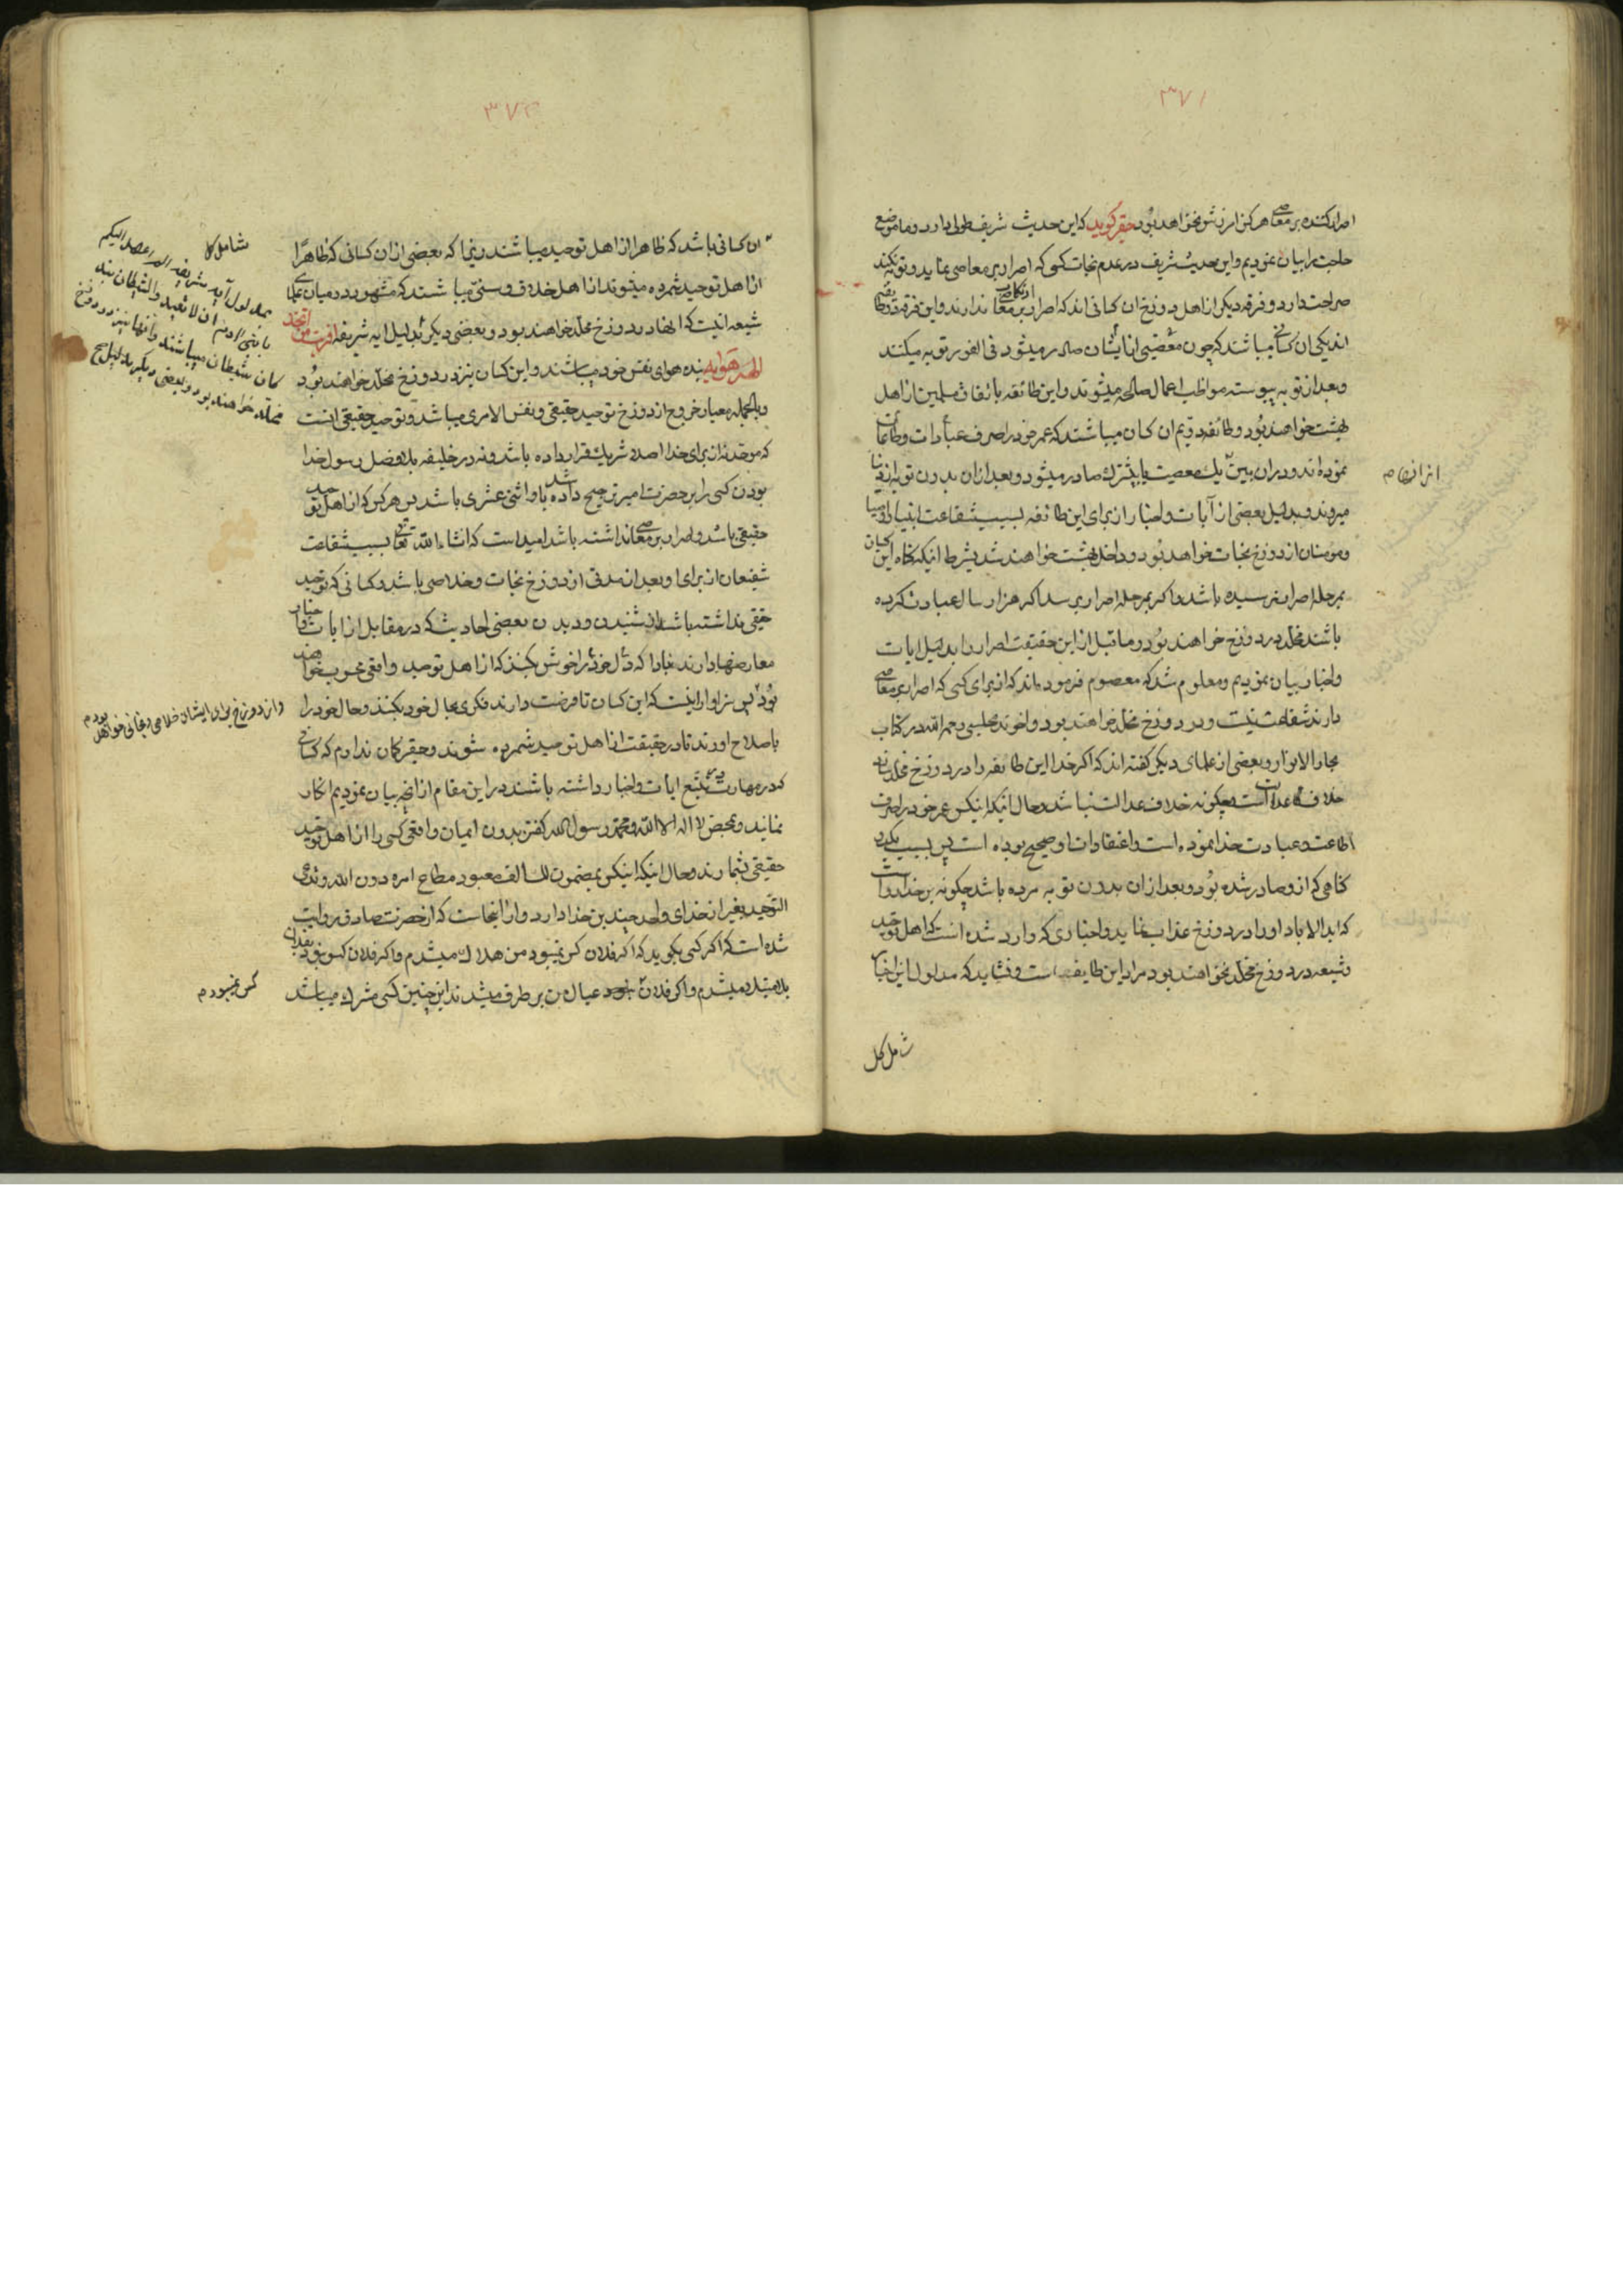 ۳۷۱
اصرار کننده بر معاصی هرکز امرزش نخواهد بود حقیر کوید که این حدیث شریف طولی دارد و ما موضع
حاجت را بیان نمودیم و این حدیث شریف در عدم نجات کسی که اصرار بر معاصی نماید و توبه نکند
صراحت دارد و فرقه دیکر از اهل دوزخ ان کسانی اند که اصرار بر معاصی ندارند و این فرقه دو طائفه
اند یکی ان کسانی میباشند که چون معصیتی از ایشان صادر میشود فی الفور توبه میکنند
و بعد از توبه پیوسته مواظب اعمال صالحه میشوند و این طائفه باتفاق مسلمین از اهل
بهشت خواهند بود و طائفه دویم ان کسان میباشند که عمر خود را صرف عبادات و طاعات
نموده اند و در ان بین یک معصیت یا بیشتر صادر میشود و بعد از ان بدون توبه از دنیا
میروند و بدلیل بعضی از آیات و اخبار از برای این طائفه بسبب شفاعت انبیا و اوصیا
و مومنان از دوزخ نجات خواهد بود و داخل بهشت خواهند شد بشرط انیکه کناه این کسان
بمرحله اصرار نرسیده باشد و اکر بمرحله اصرار برسد اکر هزار سال عبادت کرده
باشند مخلد در دوزخ خواهند بود و ما قبل از این حقیقت اصرار را بدلیل ایات
و اخبار بیان نمودیم و معلوم شد که معصوم فرموده اند که از برای کسی که اصرار بر معاصی
دارند شفاعت نیست و در دوزخ مخلد خواهند بود و اخوند مجلسی رحمه الله در کتاب
بحار الانوار و بعضی از علمای دیکر کفته اند که اکر خدا این طائفه را در دوزخ مخلد سازد
خلاف قاعده عدالت است و چکونه خلاف عدالت نباشد و حال انیکه اینکس عمر خود را صرف
اطاعت و عبادت خدا نموده است و اعتقادات او صحیح بوده است پس بسبب یک
کناهی که از او صادر شده بود و بعد از ان بدون توبه مرده باشد چکونه بر خدا روا است
که ابد الاباد او را در دوزخ عذاب نماید و اخباری که وارد شده است که اهل توحید
و شیعه در دوزخ مخلد نخواهند بود مراد این طایفه است و نشاید که مدلول این اخبار
شامل کل
۳۷۲
ان کسانی باشد که ظاهرا از اهل توحید میباشند زیرا که بعضی از ان کسانی که ظاهرًا
از اهل توحید شمرده میشوند از اهل خلاف و سنی میباشند که مشهور در میان علمای
شیعه انیست که انها در دوزخ مخلد خواهند بود و بعضی دیکر بدلیل ایه شریفه افرایت من اتخذ
الهه هواه بنده هوای نفس خود میباشند و این کسان نیز در دوزخ مخلد خواهند بود
و بالجمله معیار خروج از دوزخ توحید حقیقی و نفس الامری میباشد و توحید حقیقی انست
که موحد نه از برای خدا اصلا شریک قرار داده باشد و نه در خلیفه بلا فصل رسول خدا
بودن کسی را بر حضرت امیر ترجیح داده باشد و اثنی عشری باشد پس هر کس که از اهل توحید
حقیقی باشد و اصرار بر معاصی نداشته باشد امید است که انشاء الله تعالی بسبب شفاعت
شفیعان از برای او بعد از مدتی از دوزخ نجات و خلاصی باشد و کسانی که توحید
حقیقی نداشته باشند از شنیدن و دیدن بعضی احادیث که در مقابل از ایات و اخبار
معارضها دارند مبادا که دل خود را خوش بکنند که از اهل توحید واقعی محسوب خواهند
بود پس سزاوار انیست که این کسان تا فرصت دارند فکری بحال خود بکنند و حال خود را
باصلاح اورند تا در حقیقت از اهل توحید شمرده شوند و حقیر کمان ندارم که کسانی
که در مهارت تتبع ایات و اخبار داشته باشند در این مقام از انچه بیان نمودیم انکار
نمایند و بمحض لا اله الا الله و محمد رسول الله کفتن بدون ایمان واقعی کسی را از اهل توحید
حقیقی بشمارند و حال انیکه اینکس بمضمون
التوحید بغیر از خدای واحد چندین خدا دارد و از اینجاست که از حضرت صادق روایت
شده است که اکر کسی بکوید که اکر فلان کس نمیبود من هلاک میشدم و اکر فلان کس نبود بفلان
بلا مبتلا میشدم و اکر فلان عیال من بر طرف میشدند این چنین کسی مشرک میباشد
شامل کل
بمدلول آیه شریفه الم اعهد الیکم
یا بنی آدم ان لا تعبدوا الشیطان بنده
کان شیطان میباشند و انها نیز در دوزخ
مخلد خواهند بود و بعضی دیکر بدلیل
و از دوزخ برای ایشان خلاصی و نجاتی خواهد بود م
کس نمیبود م